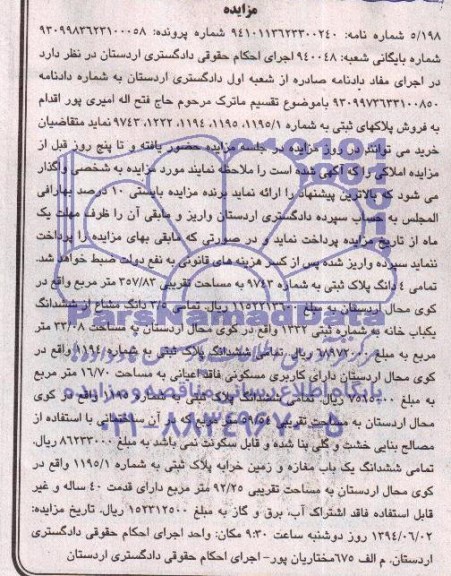 مزایده
۵/۱۹۸ شماره نامه: ۹۴۱۰۱۱۳۶۲۳۳۰۰۲۴۰ شماره پرونده: ۹۳۰۹۹۸۳۶۲۳۱۰۰۰۵۸
شماره بایگانی شعبه: ۹۴۰۰۴۸ اجرای احکام حقوقی دادگستری اردستان در نظر دارد
در اجرای مفاد دادنامه صادره از شعبه اول دادگستری اردستان به شماره دادنامه
۹۳۰۹۹۷۳۶۲۳۱۰۰۸۵۰ باموضوع تقسیم ماترک مرحوم حاج فتح اله امیری پور اقدام
به فروش پلاکهای ثبتی به شماره ۱۱۹۵/۱، ۱۱۹۵، ۱۱۹۴، ۱۲۲۲، ۹۷۴۳ نماید متقاضیان
خرید می توانند در روز مزایده در جلسه مزایده حضور یافته و تا پنج روز قبل از
مزایده املاکی را که آگهی شده است را ملاحظه نمایند مورد مزایده به شخصی واگذار
می شود که بالاترین پیشنهاد را ارائه نماید برنده مزایده بایستی ۱۰ درصد بهارافی
المجلس به حساب سپرده دادگستری اردستان واریز و مابقی آن را ظرف مهلت یک
ماه از تاریخ مزایده پرداخت نماید و در صورتی که مابقی بهای مزایده را پرداخت
ننماید سپرده واریز شده پس از کسر هزینه های قانونی به نفع دولت ضبط خواهد شد.
تمامی ٤ دانگ پلاک ثبتی به شماره ۹۷۴۳ به مساحت تقریبی ۳۵۷/۸۳ متر مربع واقع در
کوی محال اردستان به مبلغ ریال. تمامی ۳/۵ دانگ مشاع از ششدانگ
یکباب خانه به شماره ثبتی ۱۳۲۲ واقع در کوی محال اردستان به مساحت ۳۳/۰۸ متر
مربع به مبلغ ریال تمامی ششدانگ پلاک ثبتی به شماره ۱۱۹۴ واقع در
کوی محال اردستان دارای کاربری مسکونی فاقد اعیانی به مساحت ۱۶/۷۰ متر مربع
به مبلغ ریال. تمامی ششدانگ پلاک ثبتی به شماره ۱۱۹۵ واقع در کوی
محال اردستان به مساحت تقریبی متر مربع که در آن ساختمانی با استفاده از
مصالح بنایی خشت و گلی بنا شده و قابل سکونت نمی باشد به مبلغ ۸۶۲۳۳۰۰۰ ریال.
تمامی ششدانگ یک باب مغازه و زمین خرابه پلاک ثبتی به شماره ۱۱۹۵/۱ واقع در
کوی محال اردستان به مساحت تقریبی ۹۲/۲۵ متر مربع دارای قدمت ۴۰ ساله و غیر
قابل استفاده فاقد اشتراک آب، برق و گاز به مبلغ ۱۵۲۳۱۲۵۰۰ ریال. تاریخ مزایده:
۱۳۹۴/۰۶/۰۲ روز دوشنبه ساعت ۹:۳۰ مکان: واحد اجرای احکام حقوقی دادگستری
اردستان. م الف ۶۷۵ مختاریان پور- اجرای احکام حقوقی دادگستری اردستان
ParsNamadData
پایگاه اطلاع رسانی مناقصه و مزایده
۰۲۱-۸۸۳۴۹۶۷۰-۵